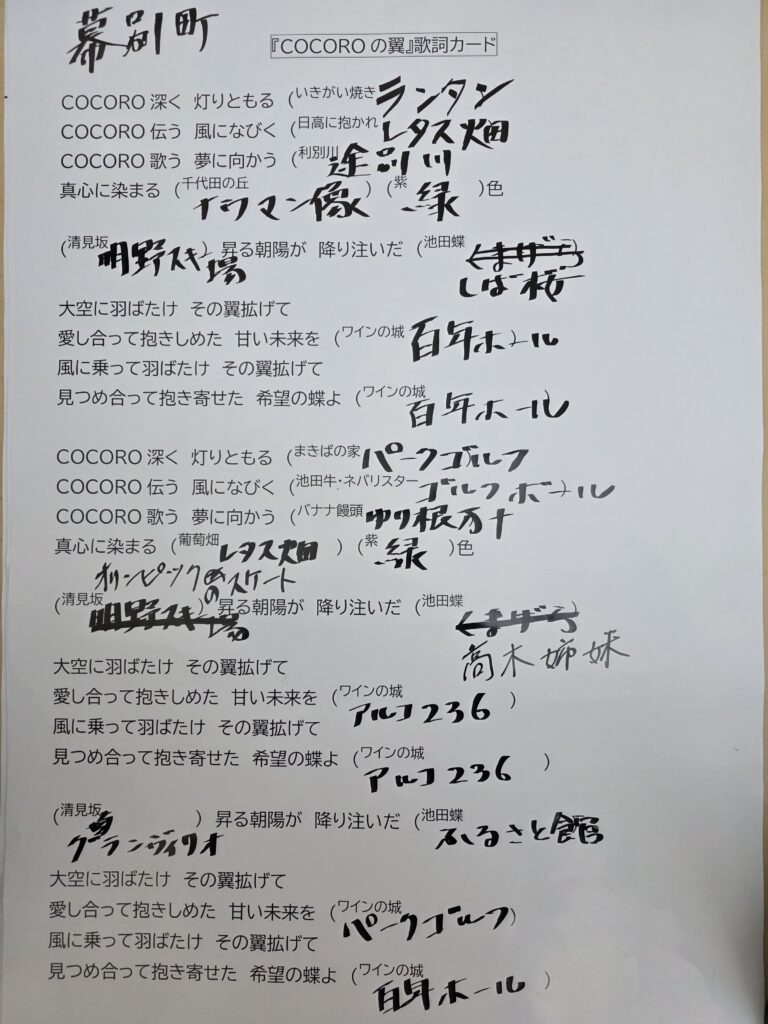 幕別町
『COCOROの翼』歌詞カード
COCORO深く 灯りともる (いきがい焼き ランタン
COCORO伝う 風になびく (日高に抱かれ レタス畑
COCORO歌う 夢に向かう (利別川 途別川
真心に染まる (千代田の丘 ナウマン像 ) (紫 緑 )色
(清見坂 明野スキー場 ) 昇る朝陽が 降り注いだ (池田蝶 くまげら )
しば桜
大空に羽ばたけ その翼拡げて
愛し合って抱きしめた 甘い未来を (ワインの城 百年ホール
風に乗って羽ばたけ その翼拡げて
見つめ合って抱き寄せた 希望の蝶よ (ワインの城 百年ホール
COCORO深く 灯りともる (まきばの家 パークゴルフ
COCORO伝う 風になびく (池田牛・ネバリスター ゴルフボール
COCORO歌う 夢に向かう (バナナ饅頭 ゆり根万十
真心に染まる (葡萄畑 レタス畑 ) (紫 緑 )色
オリンピックの スケート
(清見坂 明野スキー場 ) 昇る朝陽が 降り注いだ (池田蝶 くまげら )
高木姉妹
大空に羽ばたけ その翼拡げて
愛し合って抱きしめた 甘い未来を (ワインの城 アルコ236 )
風に乗って羽ばたけ その翼拡げて
見つめ合って抱き寄せた 希望の蝶よ (ワインの城 アルコ236 )
(清見坂 グランヴィリオ ) 昇る朝陽が 降り注いだ (池田蝶 ふるさと館
大空に羽ばたけ その翼拡げて
愛し合って抱きしめた 甘い未来を (ワインの城 パークゴルフ)
風に乗って羽ばたけ その翼拡げて
見つめ合って抱き寄せた 希望の蝶よ (ワインの城 百年ホール )